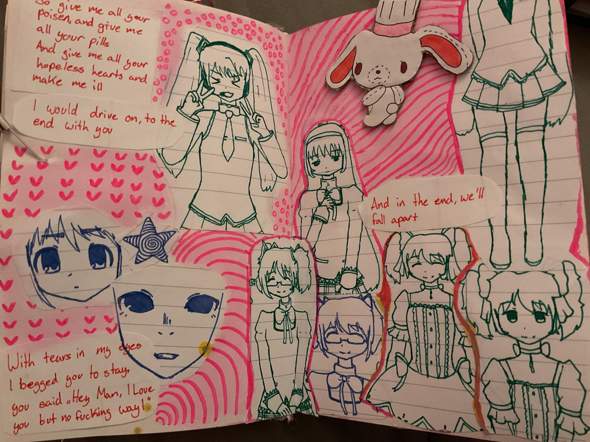 So give me all your
poison and give me
all your pills
And give me all your
hopeless hearts and
make me ill
I would drive on, to the
end with you
And in the end, we'll
fall apart
With tears in my eyes
I begged you to stay,
you said „Hey Man, I Love
you but no fucking way!"